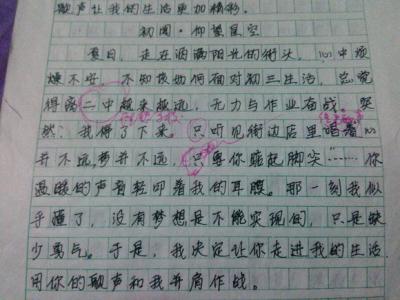 歌声让我的生活更加精彩。
初闻·仰望星空
夏日,走在洒满阳光的街头,心中烦
燥不安,不知该如何面对初三生活,总觉
得离二中越来越远,无力与作业奋战。突
然,我停了下来。只听见街边店里唱着"心
并不远,梦并不远,只要你踮起脚尖"……你
温暖的声音轻叩着我的耳膜。那一刻我似
乎懂了,没有梦想是不能实现的,只是缺
少勇气。于是,我决定让你走进我的生活
用你的歌声和我并肩作战。